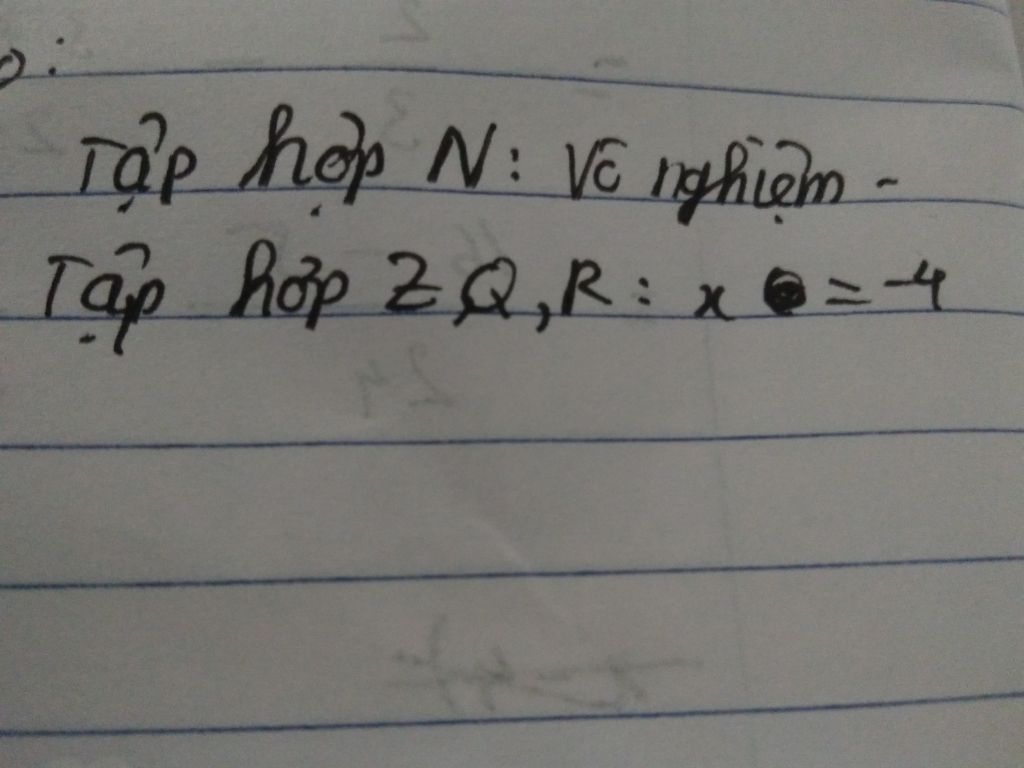 Tập hợp N: Vô nghiệm -
Tập hợp Z Q, R: x = -4